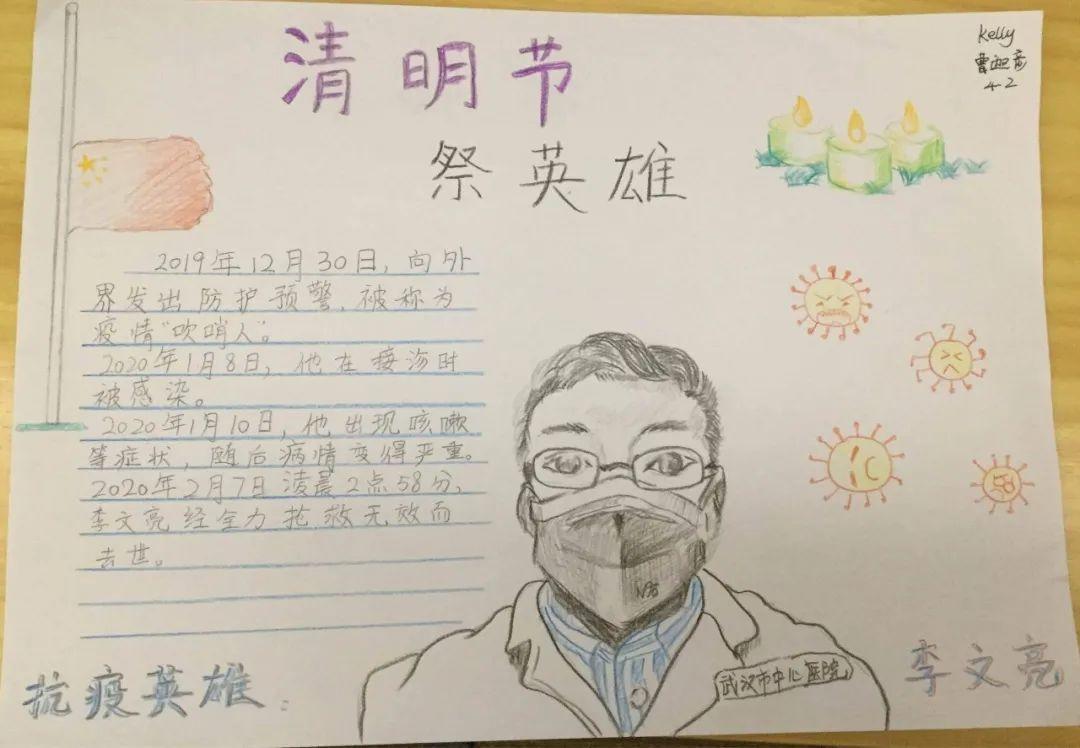 清明节
祭英雄
Kelly
4-2
2019年12月30日，向外
界发出防护预警，被称为
疫情“吹哨人”。
2020年1月8日，他在接诊时
被感染。
2020年1月10日，他出现咳嗽
等症状，随后病情变得严重。
2020年2月7日凌晨2点58分，
李文亮经全力抢救无效而
去世。
N95
武汉市中心医院
抗疫英雄：
李文亮